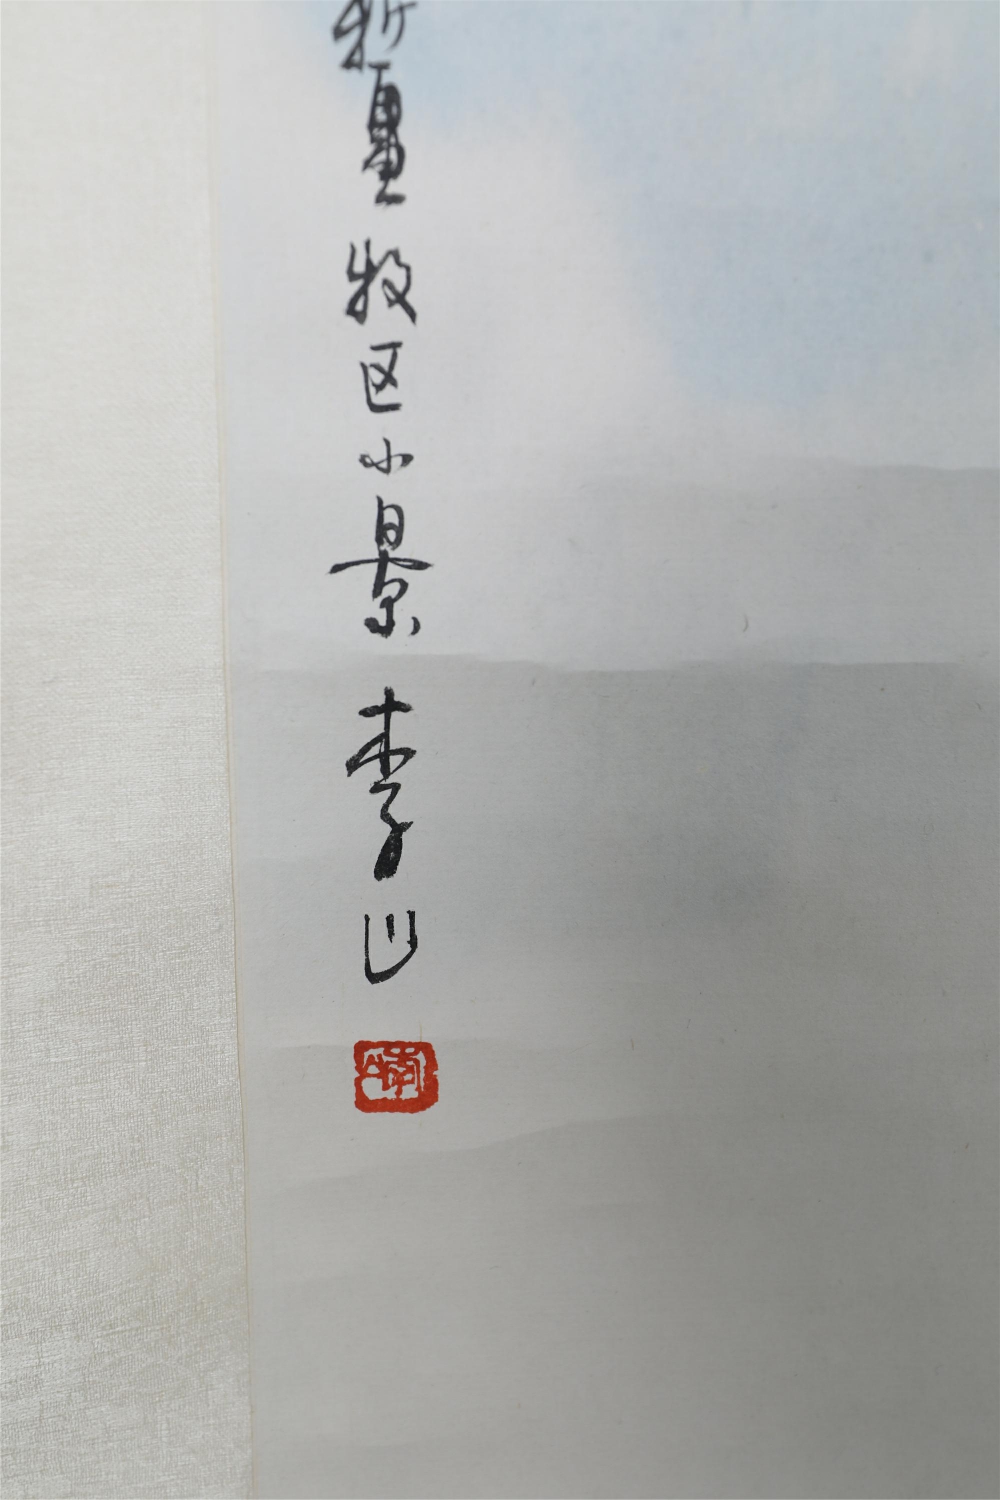 新疆牧区小景 李山